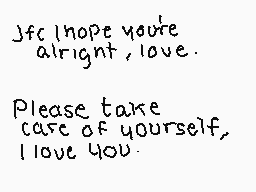 Jfc I hope you're
alright, love.
Please take
care of yourself,
I love you.